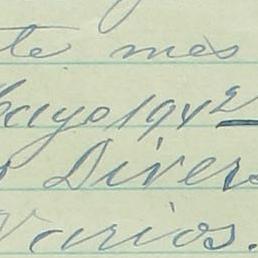 te mes
Mayo 1942
Divers
Varios.